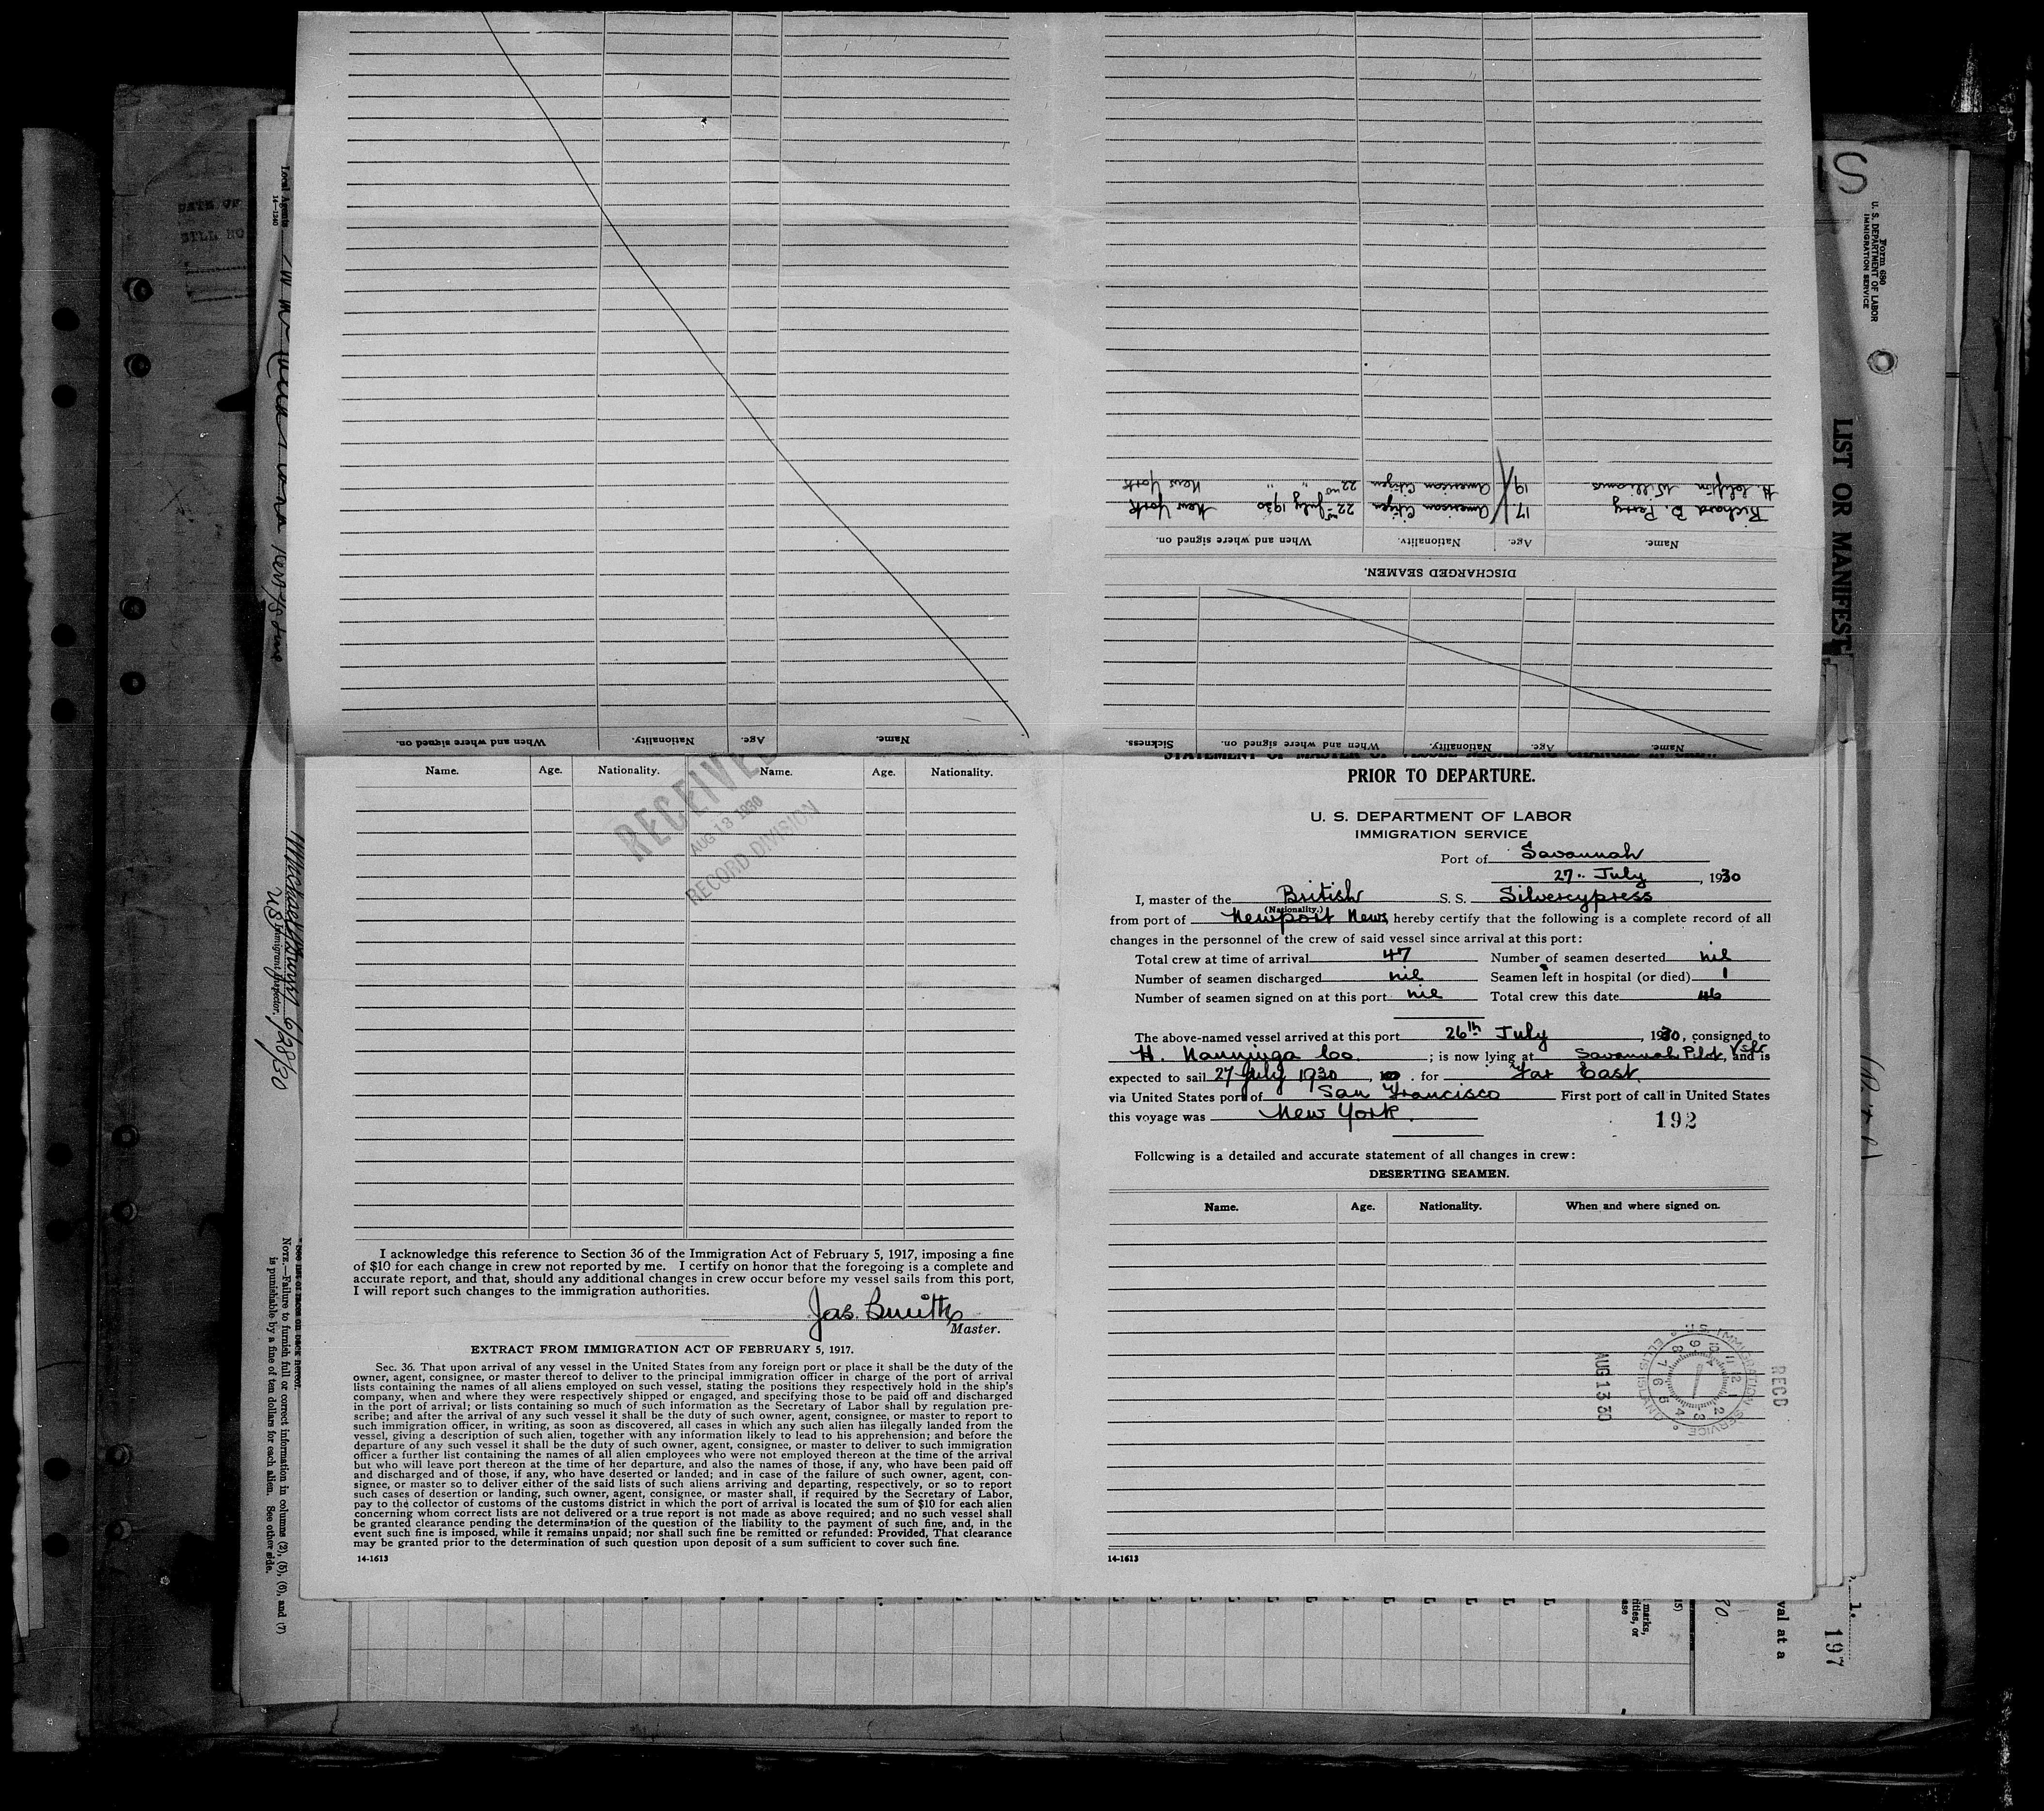 Name. Age. Nationality. When and where signed on.
Name. Age. Nationality. When and where signed on. Sickness.
DISCHARGED SEAMEN.
Name. Age. Nationality. When and where signed on.
Richard B. Perry 17 American Citizen 22nd July 1930 New York
Williams 19 American Citizen 22nd " " New York
Name. Age. Nationality. Name. Age. Nationality.
RECEIVED
AUG 18 1930
RECORD DIVISION
I acknowledge this reference to Section 36 of the Immigration Act of February 5, 1917, imposing a fine
of $10 for each change in crew not reported by me. I certify on honor that the foregoing is a complete and
accurate report, and that, should any additional changes in crew occur before my vessel sails from this port,
I will report such changes to the immigration authorities.
Jas. Smith
Master.
EXTRACT FROM IMMIGRATION ACT OF FEBRUARY 5, 1917.
Sec. 36. That upon arrival of any vessel in the United States from any foreign port or place it shall be the duty of the
owner, agent, consignee, or master thereof to deliver to the principal immigration officer in charge of the port of arrival
lists containing the names of all aliens employed on such vessel, stating the positions they respectively hold in the ship's
company, when and where they were respectively shipped or engaged, and specifying those to be paid off and discharged
in the port of arrival; or lists containing so much of such information as the Secretary of Labor shall by regulation pre-
scribe; and after the arrival of any such vessel it shall be the duty of such owner, agent, consignee, or master to report to
such immigration officer, in writing, as soon as discovered, all cases in which any such alien has illegally landed from the
vessel, giving a description of such alien, together with any information likely to lead to his apprehension; and before the
departure of any such vessel it shall be the duty of such owner, agent, consignee, or master to deliver to such immigration
officer a further list containing the names of all alien employees who were not employed thereon at the time of the arrival
but who will leave port thereon at the time of her departure, and also the names of those, if any, who have been paid off
and discharged and of those, if any, who have deserted or landed; and in case of the failure of such owner, agent, con-
signee, or master so to deliver either of the said lists of such aliens arriving and departing, respectively, or so to report
such cases of desertion or landing, such owner, agent, consignee, or master shall, if required by the Secretary of Labor,
pay to the collector of customs of the customs district in which the port of arrival is located the sum of $10 for each alien
concerning whom correct lists are not delivered or a true report is not made as above required; and no such vessel shall
be granted clearance pending the determination of the question of the liability to the payment of such fine, and, in the
event such fine is imposed, while it remains unpaid; nor shall such fine be remitted or refunded: Provided, That clearance
may be granted prior to the determination of such question upon deposit of a sum sufficient to cover such fine.
14-1613
PRIOR TO DEPARTURE.
U. S. DEPARTMENT OF LABOR
IMMIGRATION SERVICE
Port of Savannah
27. July, 1930
I, master of the British S. S. Silvercypress
(Nationality.)
from port of Newport News hereby certify that the following is a complete record of all
changes in the personnel of the crew of said vessel since arrival at this port:
Total crew at time of arrival 47 Number of seamen deserted nil
Number of seamen discharged nil Seamen left in hospital (or died) 1
Number of seamen signed on at this port nil Total crew this date 46
The above-named vessel arrived at this port 26th July, 1930, consigned to
H. Nanninga Co. ; is now lying at Savannah Pilot, and is
expected to sail 27 July 1930, for Far East.
via United States port of San Francisco First port of call in United States
this voyage was New York.
192
Following is a detailed and accurate statement of all changes in crew:
DESERTING SEAMEN.
Name. Age. Nationality. When and where signed on.
REC'D
U. S. IMMIGRATION SERVICE ELLIS ISLAND
AUG 13 30
14-1613
Form 680
U. S. DEPARTMENT OF LABOR
IMMIGRATION SERVICE
LIST OR MANIFEST
197
val at a
marks,
Local Agents
14-1240
Immigrant Inspector.
6/28/30
NOTE.—Failure to furnish full or correct information in columns (2), (5), (6), and (7)
is punishable by a fine of ten dollars for each alien. See other side.
DATE OF